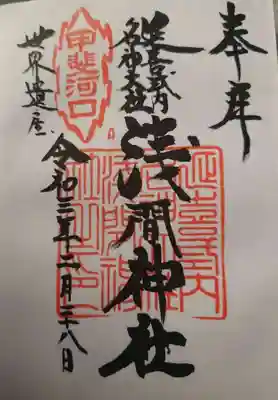 奉拝
延喜式内
名神大社
浅間神社
甲斐河口
世界遺産
令和三年二月二八日
延喜式内